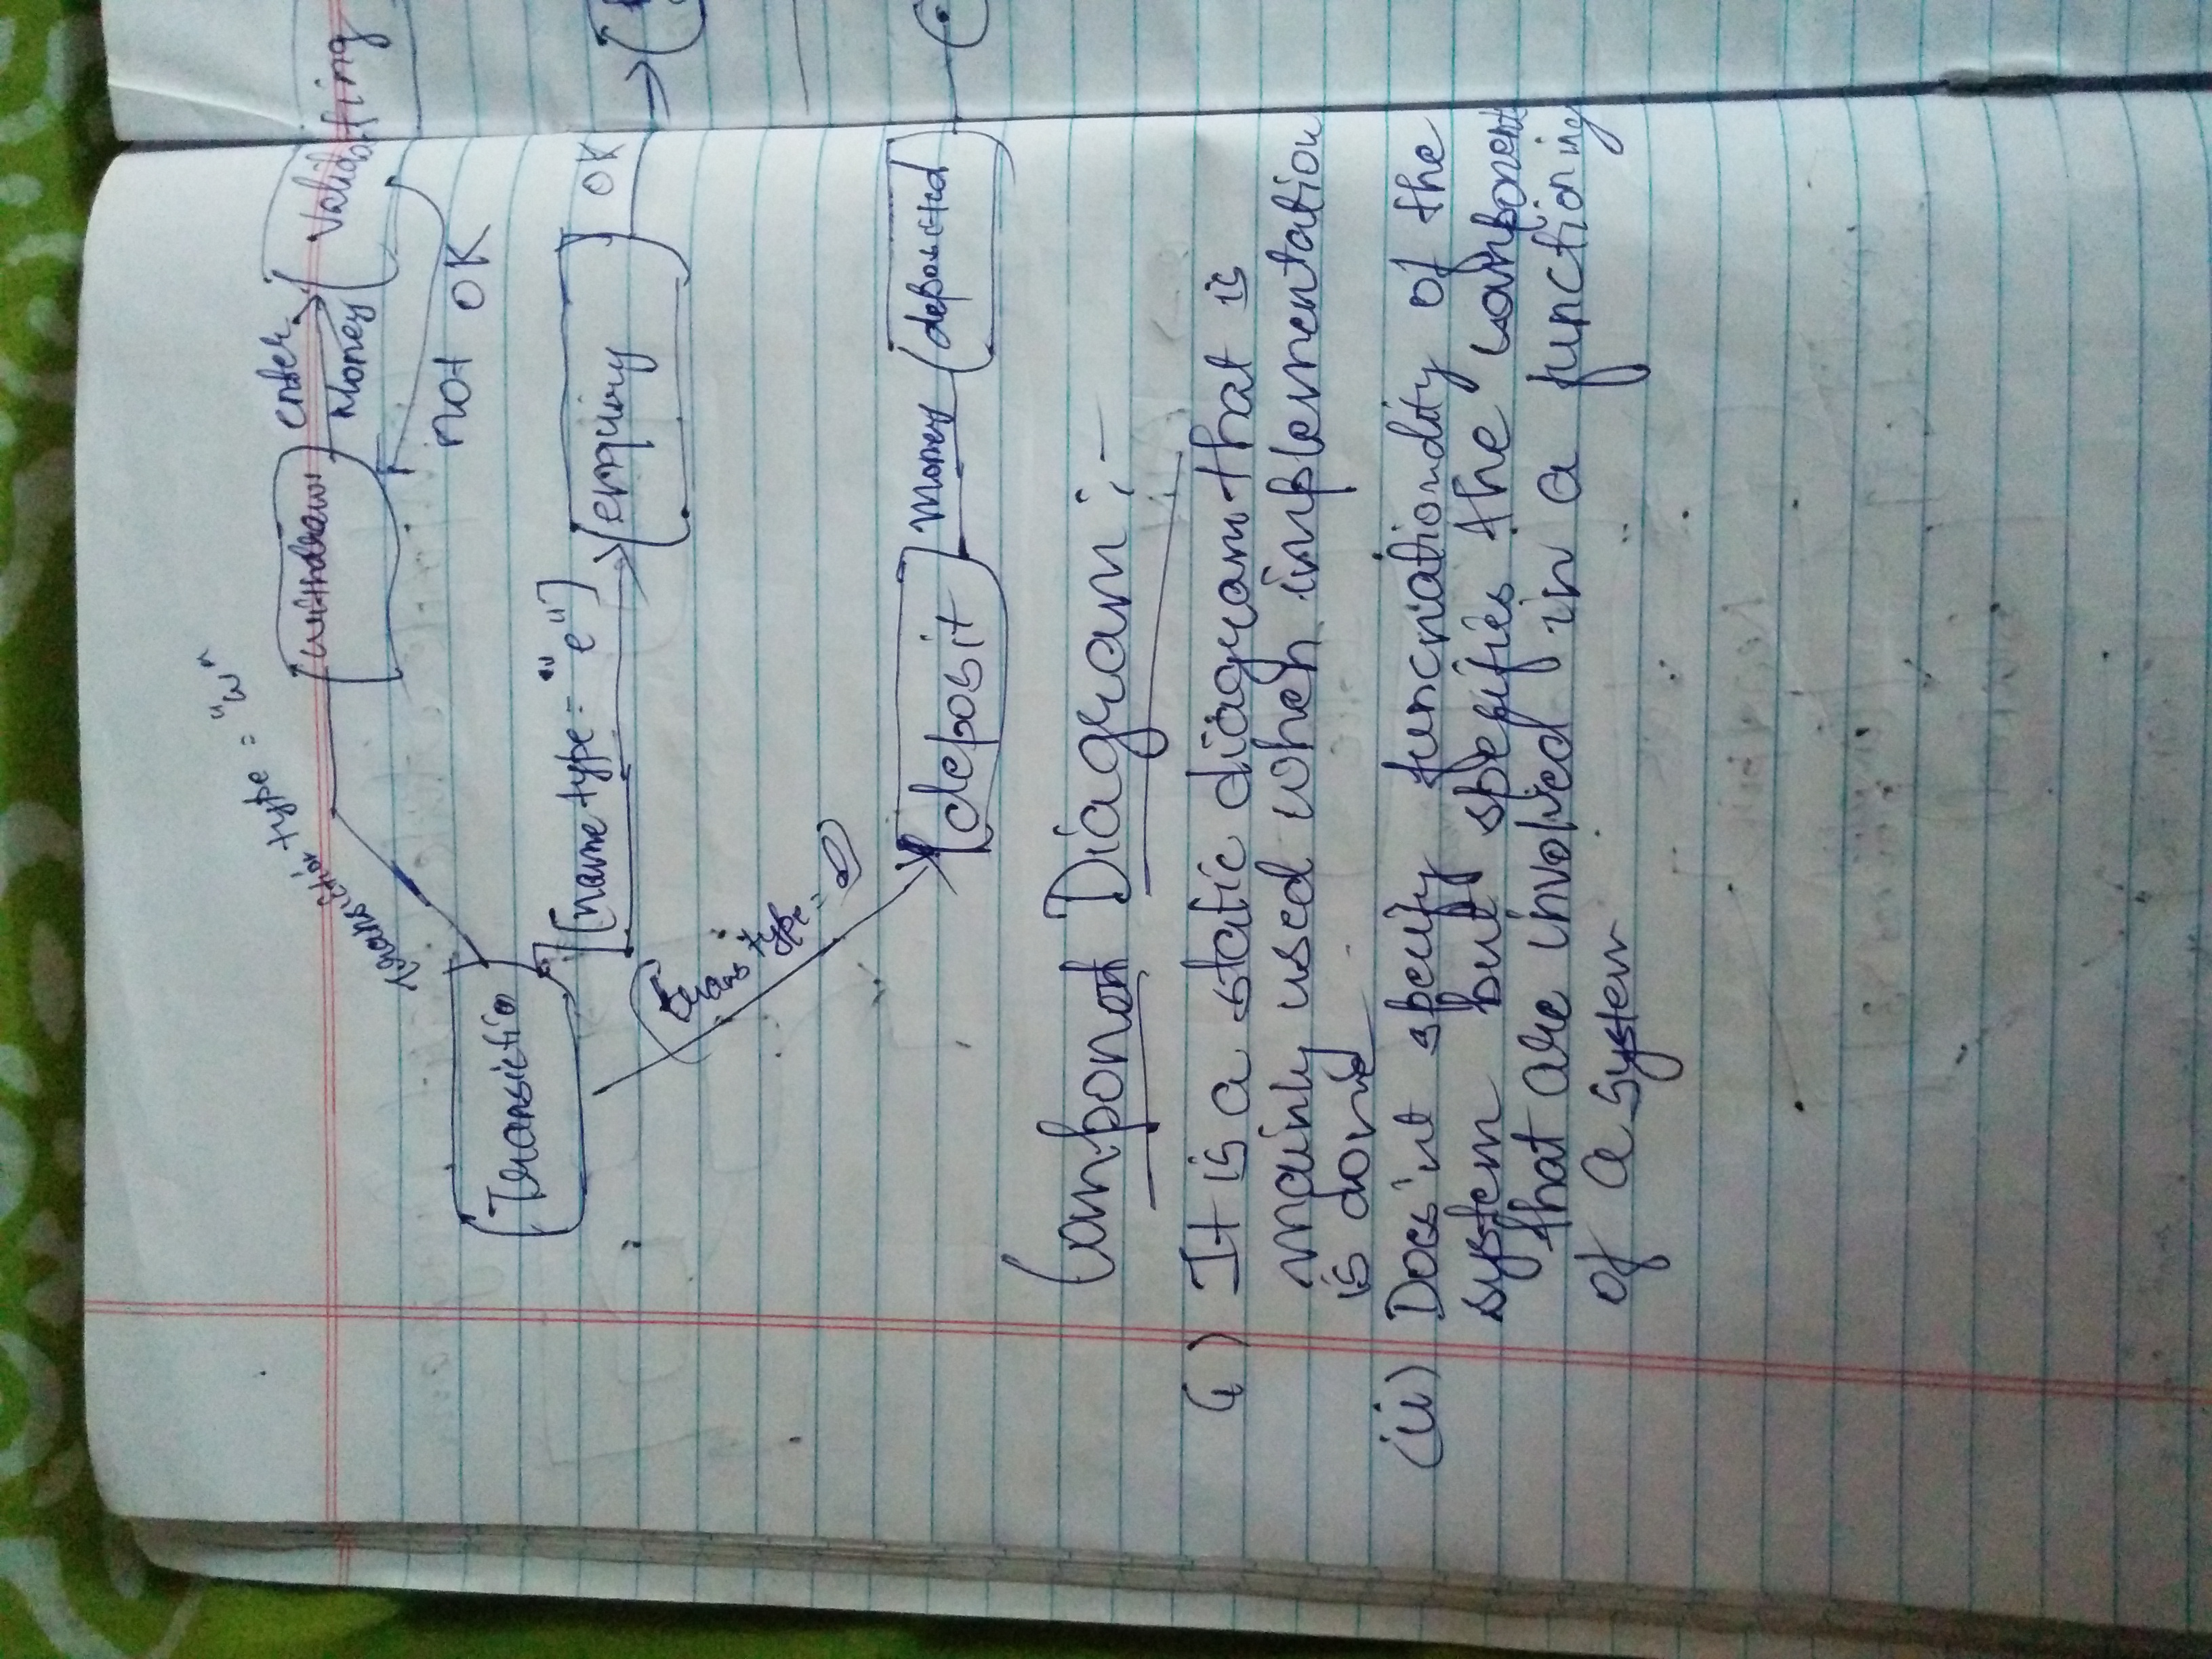 transiction type = "w"
withdraw
enter
Money
Validating
not OK
Transictio
[name type = "e"]
enquiry
OK
type =
deposit
money
deposited
Componont Diagram :-
(i) It is a static diagram that is
mainly used when implementation
is done
(ii) Does'nt specify funcnationality of the
system but specifies the component
that are involved in a functioning
of a system